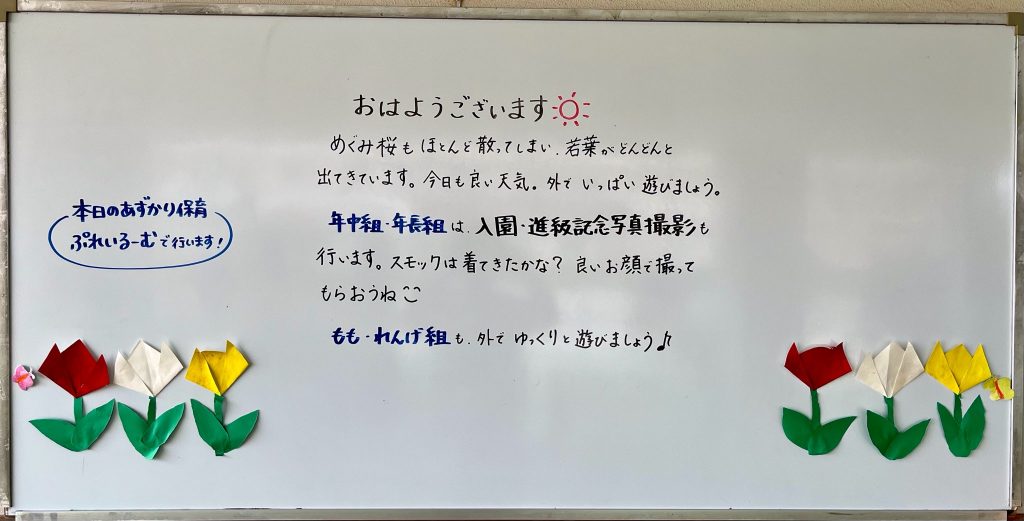 おはようございます
めぐみ桜も ほとんど散ってしまい、若葉がどんどんと
出てきています。今日も良い天気。外で いっぱい遊びましょう。
年中組・年長組は、入園・進級記念写真撮影も
行います。スモックは着てきたかな？ 良いお顔で撮って
もらおうね
もも・れんげ組も、外で ゆっくりと遊びましょう♪
本日のあずかり保育
ぷれいるーむで行います！